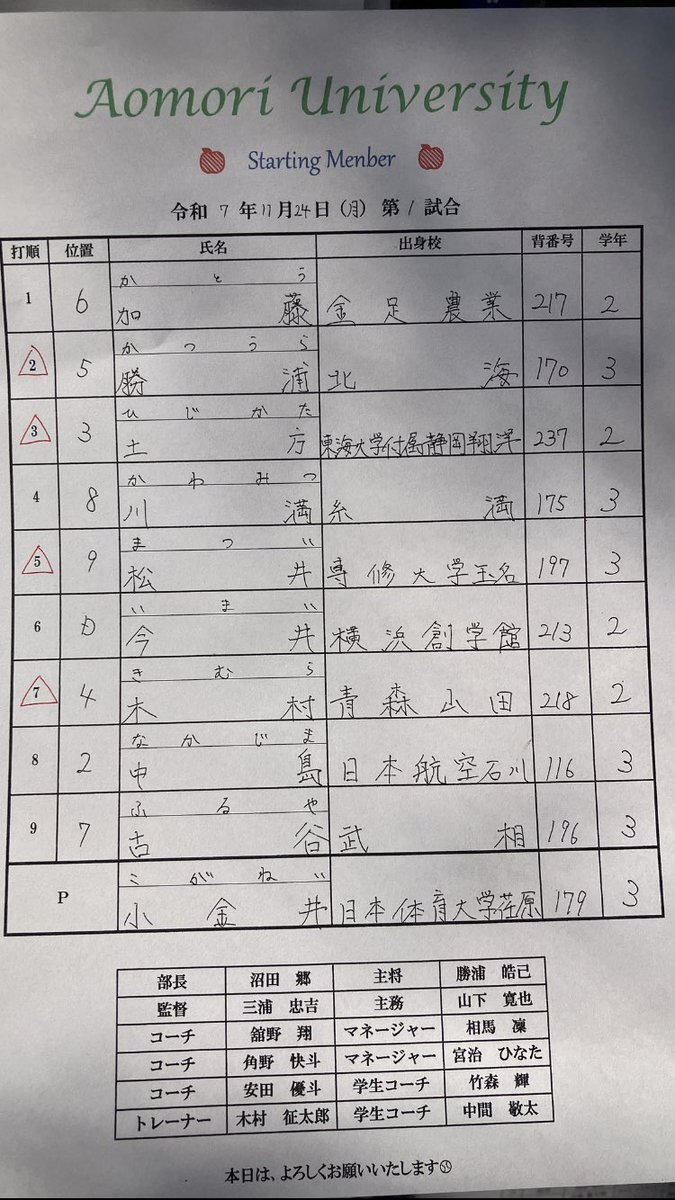 Aomori University
Starting Menber
令和 7 年 11 月 24 日 (月) 第 1 試合
打順 位置 氏名 出身校 背番号 学年
かとう
1 6 加藤 金足農業 217 2
かつうら
2 5 勝浦 北海 170 3
ひじかた
3 3 土方 東海大学付属静岡翔洋 237 2
かわみつ
4 8 川満 糸満 175 3
まつい
5 9 松井 専修大学玉名 197 3
いまい
6 D 今井 横浜創学館 213 2
きむら
7 4 木村 青森山田 218 2
なかじま
8 2 中島 日本航空石川 116 3
ふるや
9 7 古谷 武相 196 3
こがねい
P 小金井 日本体育大学荏原 179 3
部長 沼田 郷 主将 勝浦 皓己
監督 三浦 忠吉 主務 山下 寛也
コーチ 舘野 翔 マネージャー 相馬 凜
コーチ 角野 快斗 マネージャー 宮治 ひなた
コーチ 安田 優斗 学生コーチ 竹森 輝
トレーナー 木村 征太郎 学生コーチ 中間 敬太
本日は、よろしくお願いいたします